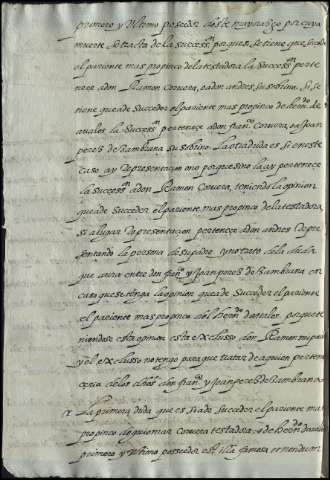 primero y Ultimo poseedor deste mayorazgo por cuya
muerte se trata de la sucess.on porque si se tiene que sucede
el pariente mas propinco de la testadora la success.on perte
nece a don Ramon Corvera, o a don andres su sobrino. Si se
tiene que a de succeder el pariente mas propinco de hern.do de
avalos la success.on pertenece a don fran.co Corvera, o a Joan
perez de Bambiana su sobrino. La otra duda es si en este
caso ay representacion o no porque si no la ay pertenece
la success.on a don Ramon Corvera, teniendo la opinion
que a de succeder el pariente mas propinco de la testadora
si a lugar representacion pertenece a don andres repre
sentando la persona de su padre, y no trato de la duda
que avra entre don fran.co y Joan perez de Bambiana en
caso que se tenga la opinion que a de succeder el pariente
el pariente mas propinco del Hern.do de avalos porque te
niendose esta opinion esta excluso don Ramon mi parte
y el excluso no tengo para que tratar de a quien pertene
ceria de los dichos don fran.co y Joan perez de Bambiana
La primera duda que es si a de succeder el pariente mas
propinco de guiomar Corvera testadora, o de hern.do davalos
primero y Ultimo possedor est illa famosa et nendum